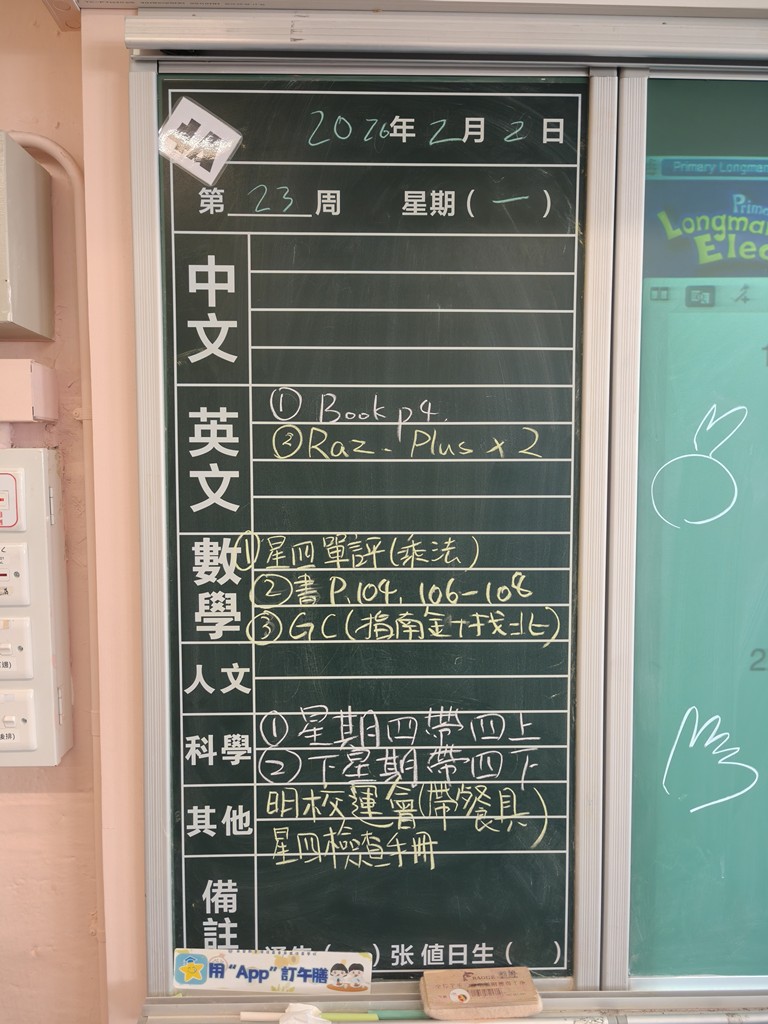 2026年 2月 2日
第 23 周 星期(一)
中文
英文
① Book p4.
② Raz - Plus x 2
數學
① 星四單評(乘法)
② 書 P.104, 106-108
③ GC(指南針+找北)
人文
科學
① 星期四帶四上
② 下星期帶四下
其他
明校運會(帶餐具)
星四檢查手冊
備註
( ) 张 值日生 ( )
用 “App” 訂午膳
Primary Longman
Prim
Longma
Elec
2